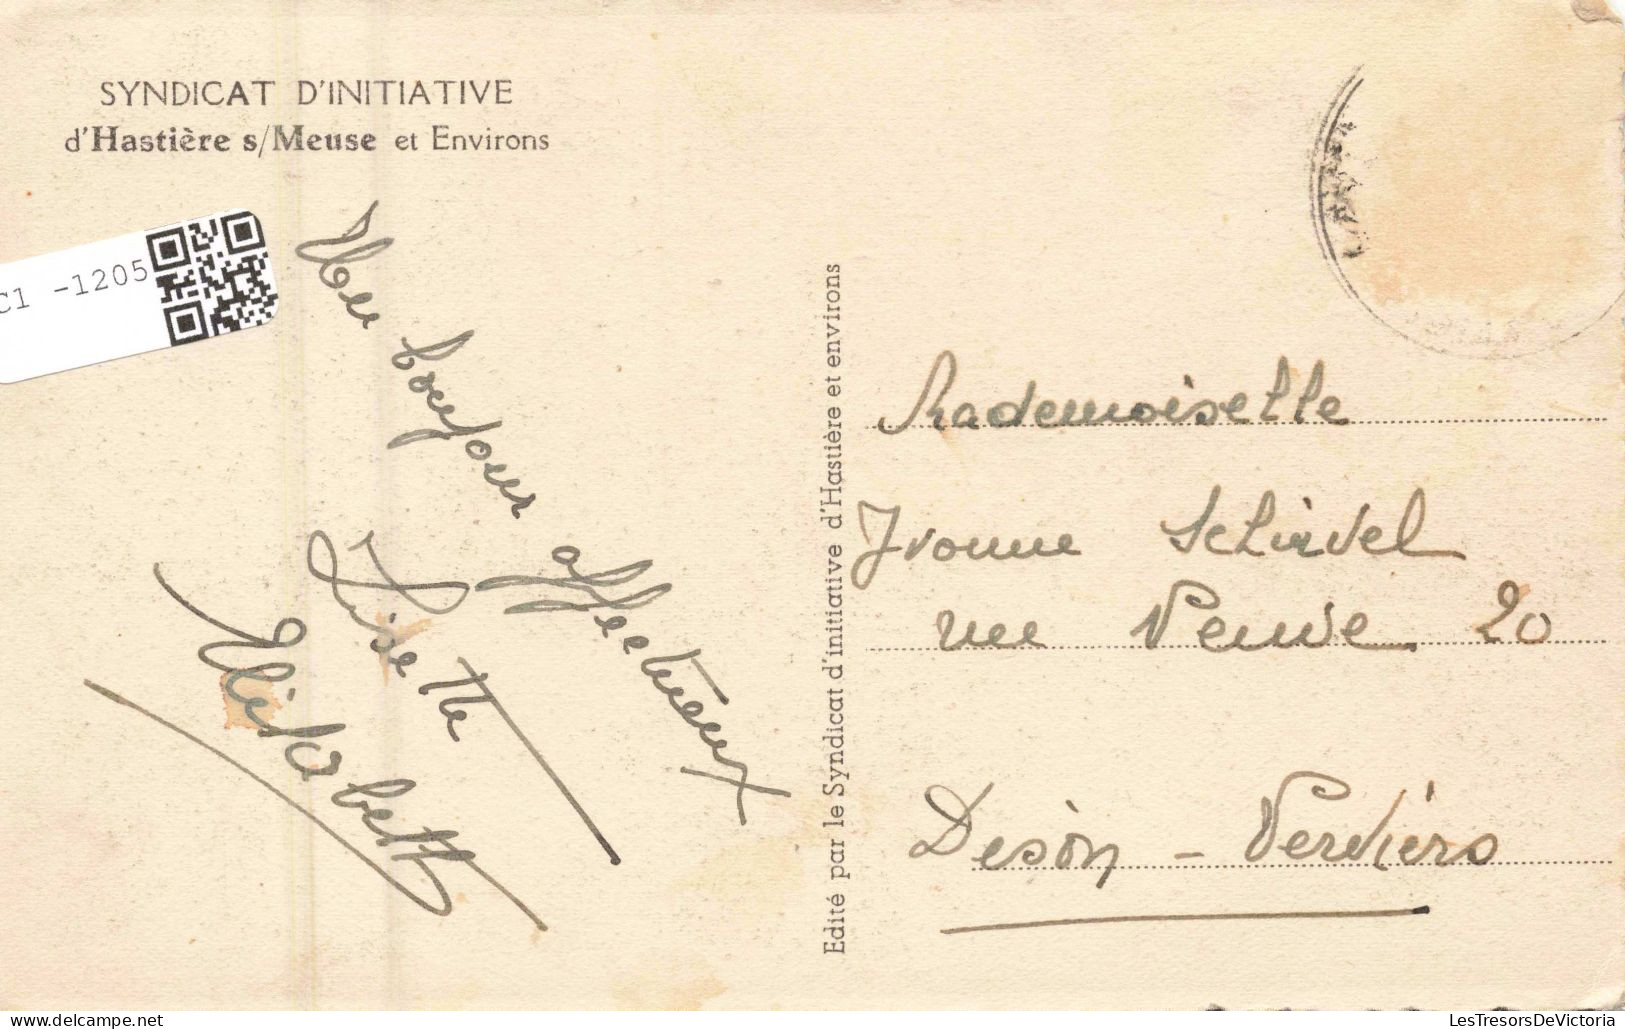 SYNDICAT D'INITIATIVE
d'Hastière s/Meuse et Environs
C1 -1205
bonjour affectueux
Lisette
Elisabeth
Edité par le Syndicat d'initiative d'Hastière et environs
Mademoiselle
Yvonne
rue Peuve 20
Dison - Verviers
LesTresorsDeVictoria